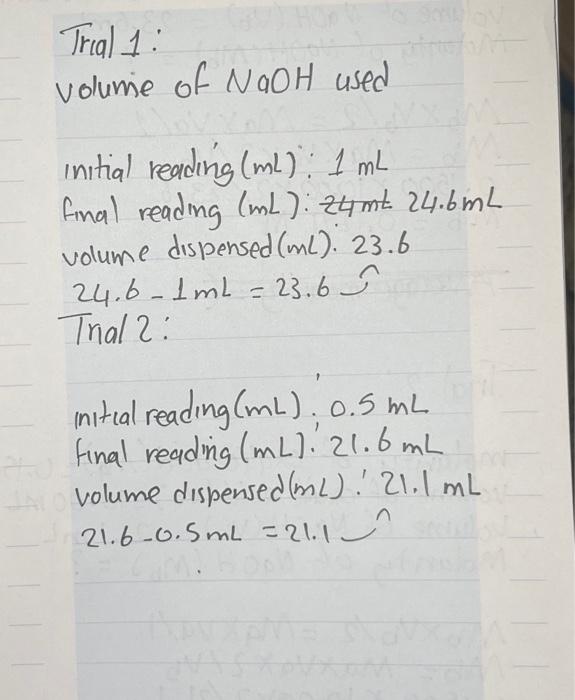 Trial 1:
volume of NaOH used
initial reading (mL): 1 mL
final reading (mL): 24 mL 24.6 mL
volume dispensed (mL): 23.6
24.6 - 1 mL = 23.6
Trial 2:
initial reading (mL): 0.5 mL
final reading (mL): 21.6 mL
volume dispensed (mL): 21.1 mL
21.6 - 0.5 mL = 21.1